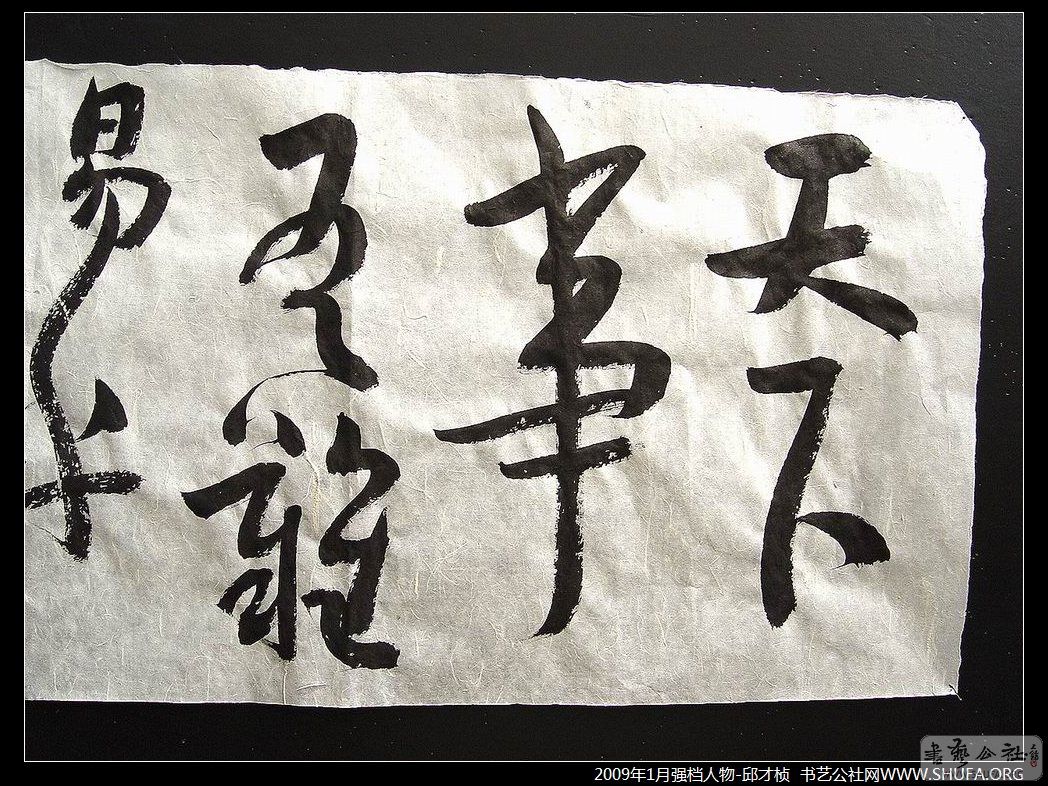 天下
事
有難
易乎
書藝公社
2009年1月强档人物-邱才桢 书艺公社网WWW.SHUFA.ORG